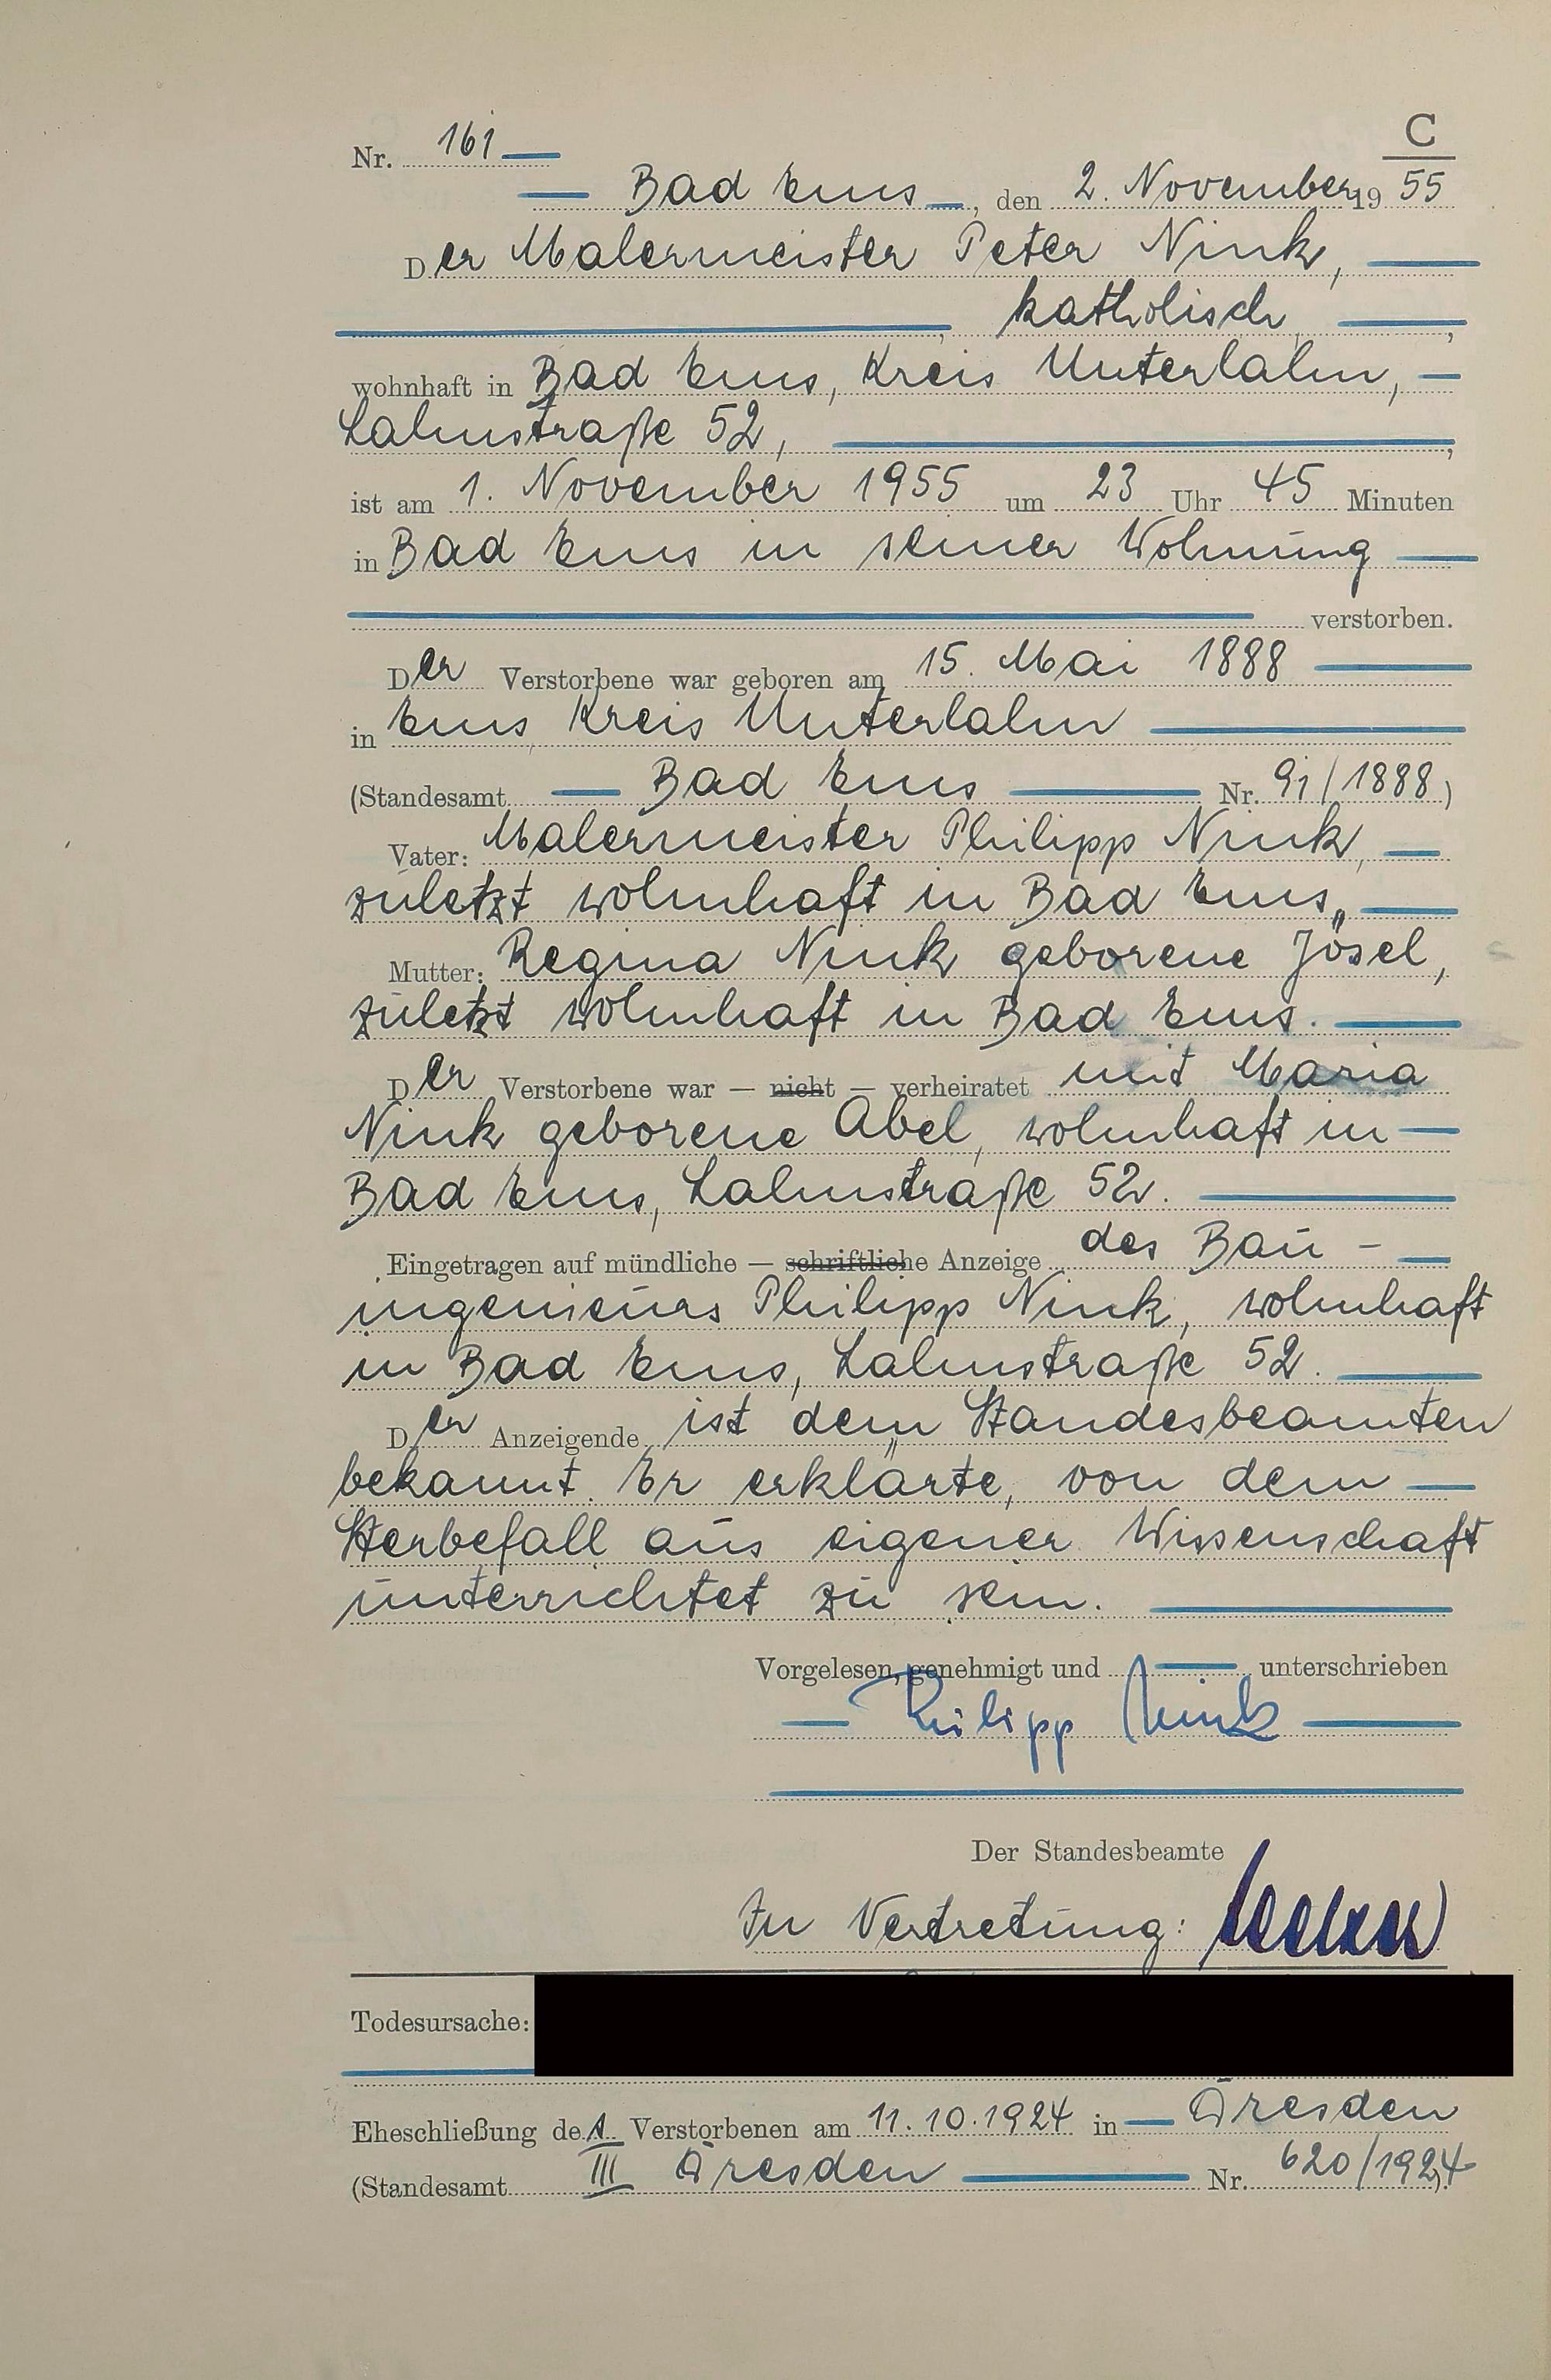 C
Nr. 161
Bad Ems, den 2. November 1955
Der Malermeister Peter Nink,
, katholisch,
wohnhaft in Bad Ems, Kreis Unterlahn,
Lahnstraße 52, ,
ist am 1. November 1955 um 23 Uhr 45 Minuten
in Bad Ems in seiner Wohnung
verstorben.
Der Verstorbene war geboren am 15. Mai 1888
in Ems, Kreis Unterlahn
(Standesamt Bad Ems Nr. 91/1888)
Vater: Malermeister Philipp Nink,
zuletzt wohnhaft in Bad Ems,
Mutter: Regina Nink geborene Jösel,
zuletzt wohnhaft in Bad Ems.
Der Verstorbene war — nicht — verheiratet mit Maria
Nink geborene Abel, wohnhaft in
Bad Ems, Lahnstraße 52.
Eingetragen auf mündliche — schriftliche Anzeige des Bau-
ingenieurs Philipp Nink, wohnhaft
in Bad Ems, Lahnstraße 52.
Der Anzeigende ist dem Standesbeamten
bekannt. Er erklärte, von dem
Sterbefall aus eigener Wissenschaft
unterrichtet zu sein.
Vorgelesen, genehmigt und unterschrieben
Philipp Nink
Der Standesbeamte
In Vertretung:
Todesursache:
Eheschließung des Verstorbenen am 11.10.1924 in Dresden
(Standesamt III Dresden Nr. 620/1924).